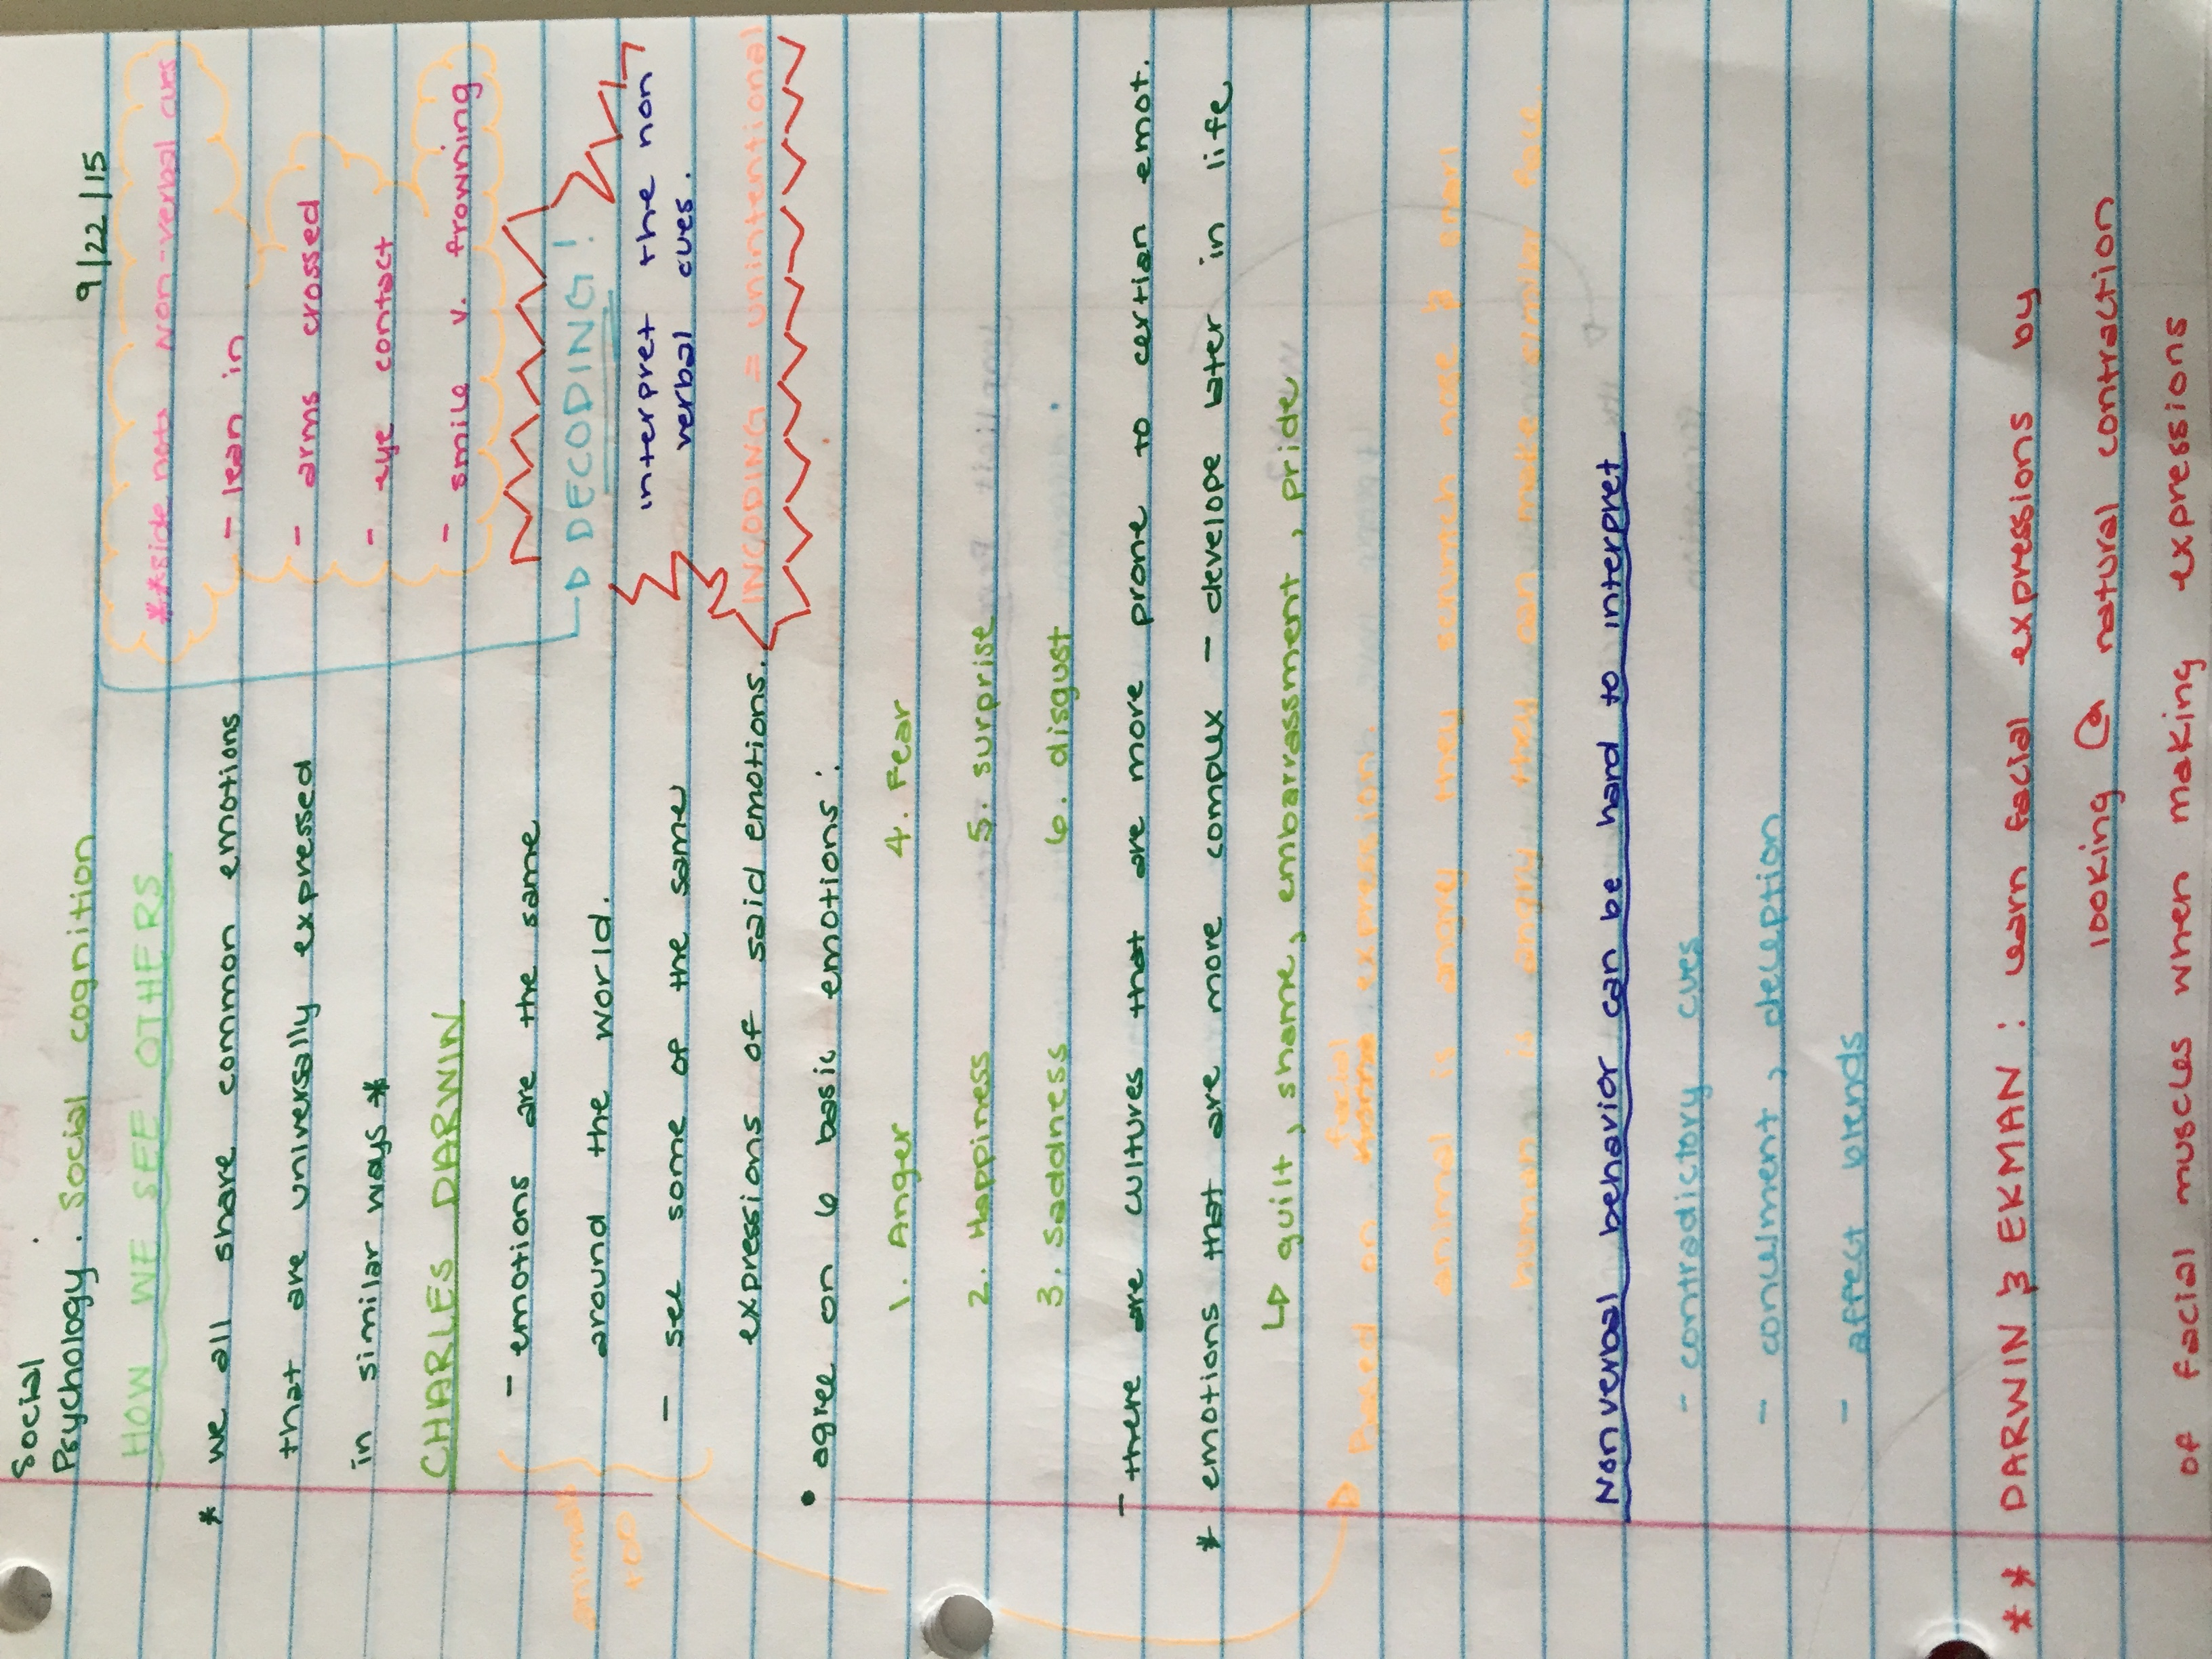 Social
Psychology. social cognition
9/22/15
HOW WE SEE OTHERS
* we all share common emotions
that are universally expressed
in similar ways *
CHARLES DARWIN
- emotions are the same
around the world.
- see some of the same
expressions of said emotions.
animals
too
**side note non-verbal cues
- lean in
- arms crossed
- eye contact
- smile v. frowning
DECODING!
interpret the non
verbal cues.
INCODING = unintentional
• agree on 6 basic emotions:
1. Anger 4. Fear
2. Happiness 5. surprise
3. Saddness 6. disgust
- there are cultures that are more prone to certian emot.
* emotions that are more complex - develope later in life
guilt, shame, embarrassment, pride
facial
Based on expression.
animal is angry they scrunch nose & snarl
human is angry they can make similar face.
Nonverbal behavior can be hard to interpret
- contradictory cues
- conuelment, deception
- affect blends
** DARWIN & EKMAN: learn facial expressions by
looking @ natural contraction
of facial muscles when making expressions